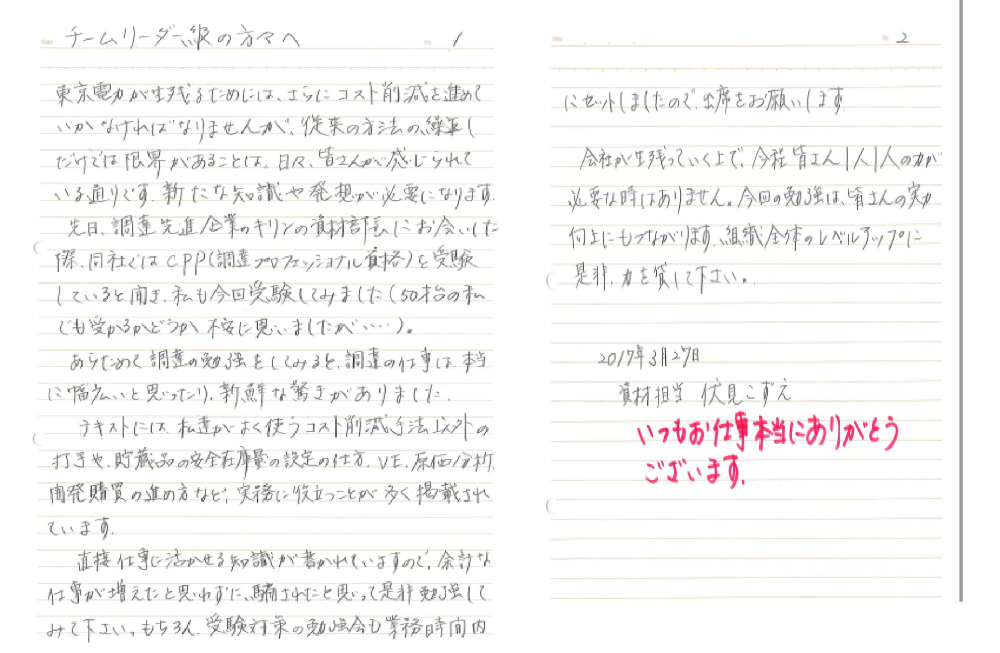 チームリーダー級の方々へ
1
東京電力が生残るためには、さらにコスト削減を進めて
いかなければなりませんが、従来の方法の、繰返し
だけでは限界があることは、日々、皆さんが感じられて
いる通りです。新たな知識や発想が必要になります。
先日、調達先進企業のキリンの資材部長にお会いした
際、同社ではCPP(調達プロフェッショナル資格)を受験
していると聞き、私も今回受験してみました(50才台の私
でも受かるかどうか不安に思いましたが……)。
あらためて調達の勉強をしてみると、調達の仕事は、本当
に幅広いと思ったり、新鮮な驚きがありました。
テキストには、私達がよく使うコスト削減手法以外の
打手や、貯蔵品の安全在庫量の設定の仕方、VE、原価分析、
開発購買の進め方など、実務に役立つことが多く掲載され
ています。
直接仕事に活かせる知識が書かれていますので、余計な
仕事が増えたと思わずに、騙されたと思って是非勉強して
みて下さい。もちろん、受験対策の勉強会も業務時間内
2
にセットしましたので、出席をお願いします。
会社が生残っていく上で、今程皆さん1人1人の力が
必要な時はありません。今回の勉強は、皆さんの実力
向上にもつながります。組織全体のレベルアップに
是非、力を貸して下さい。
2017年3月27日
資材担当 伏見こずえ
いつもお仕事本当にありがとう
ございます。